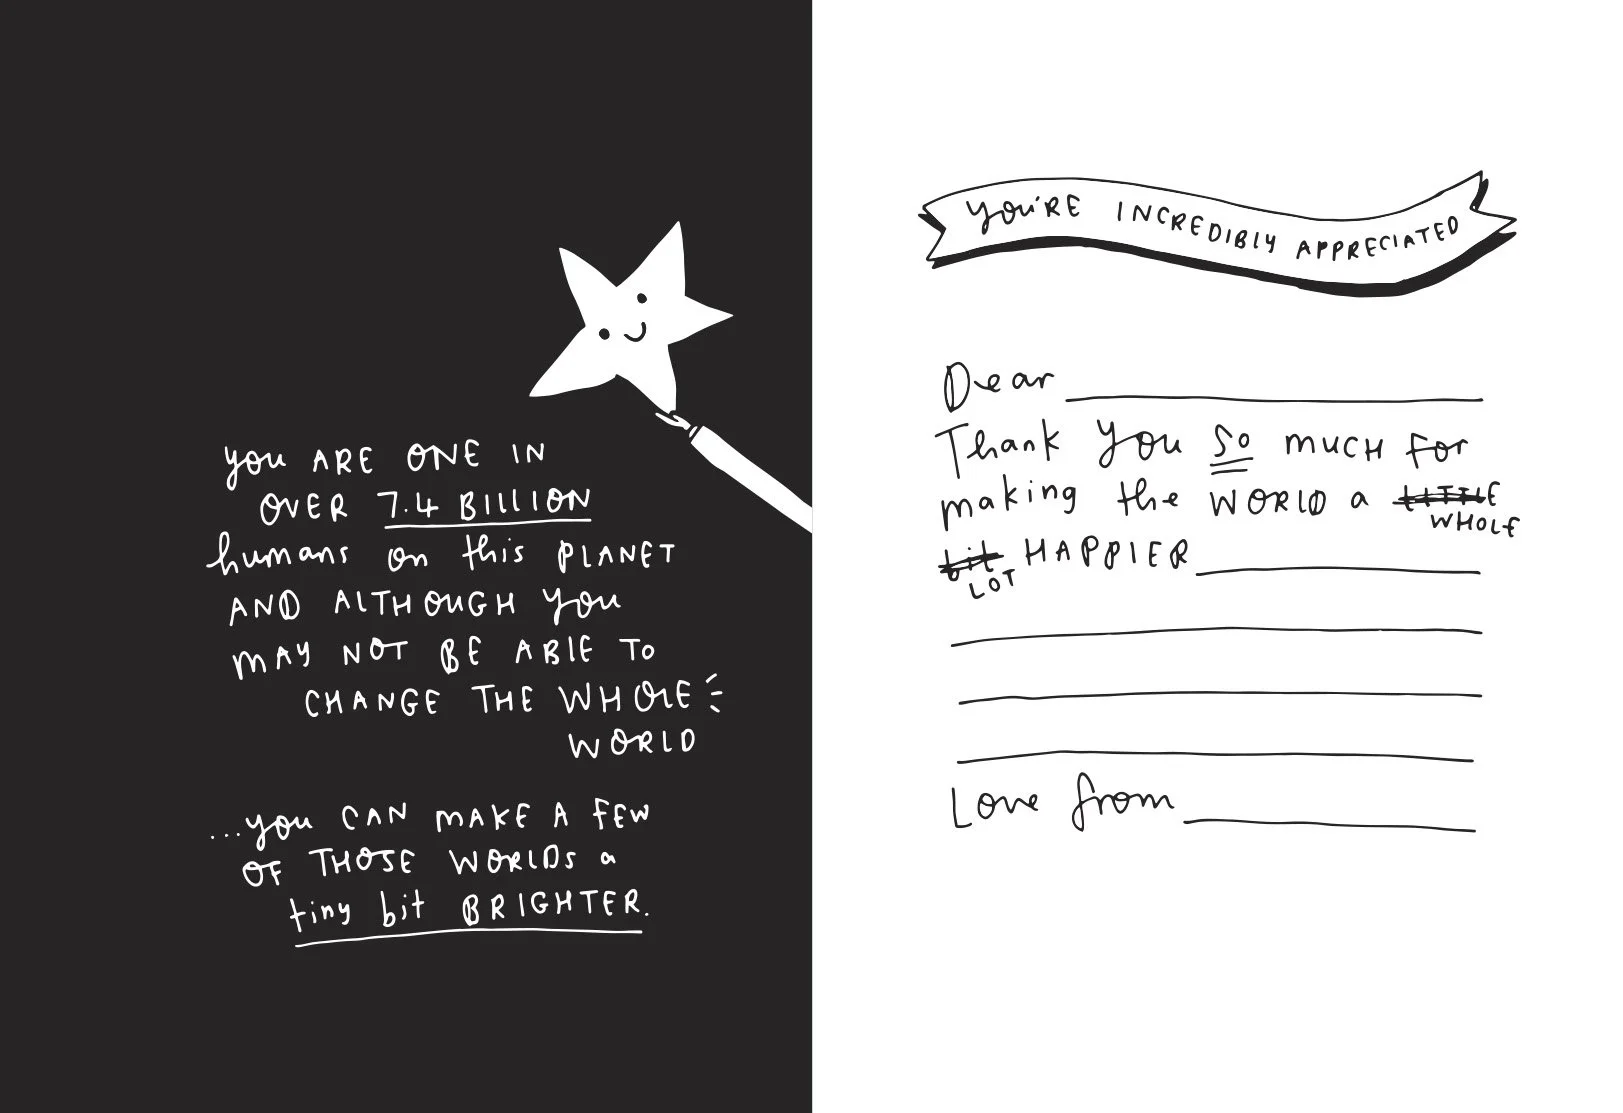 you ARE ONE IN
OVER 7.4 BILLION
humans on this PLANET
AND ALTHOUGH you
MAY NOT BE ABLE TO
CHANGE THE WHOLE
WORLD
...you CAN MAKE A FEW
OF THOSE WORLDS a
tiny bit BRIGHTER.
you'RE INCREDIBLY APPRECIATED
Dear
Thank you So MUCH For
making the WORLD a LITTLE
WHOLE
bit HAPPIER
LOT
Love from